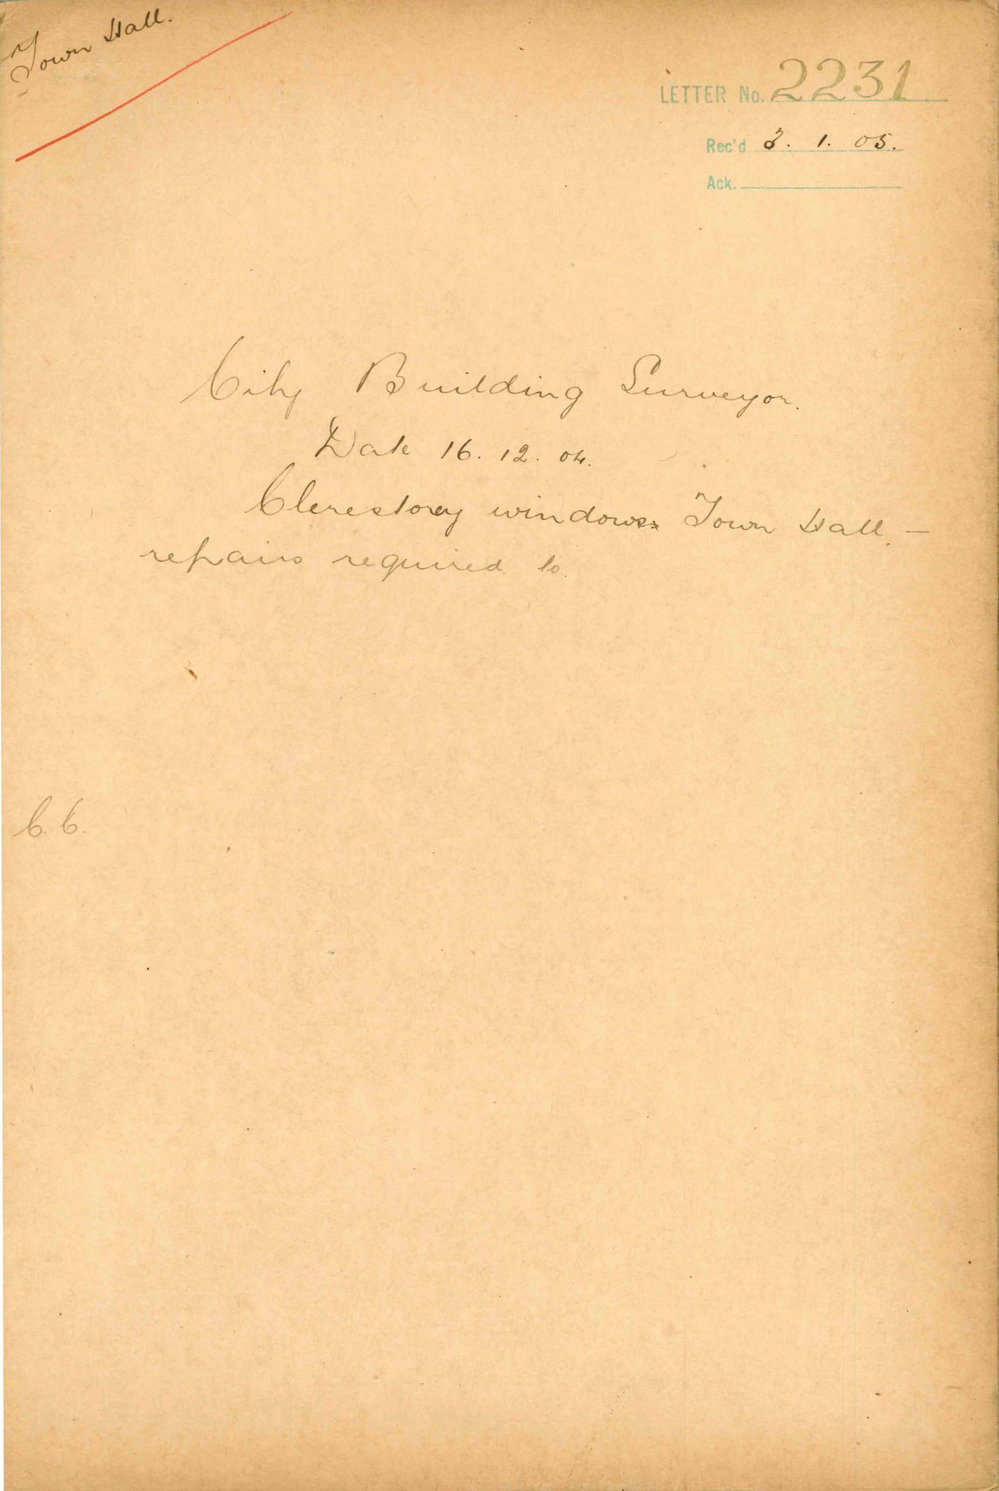 Town Hall.
LETTER No. 2231
Rec'd 3. 1. 05.
Ack.
City Building Surveyor.
Date 16. 12. 04.
Clerestorey windows Town Hall. —
repairs required to.
C. C.